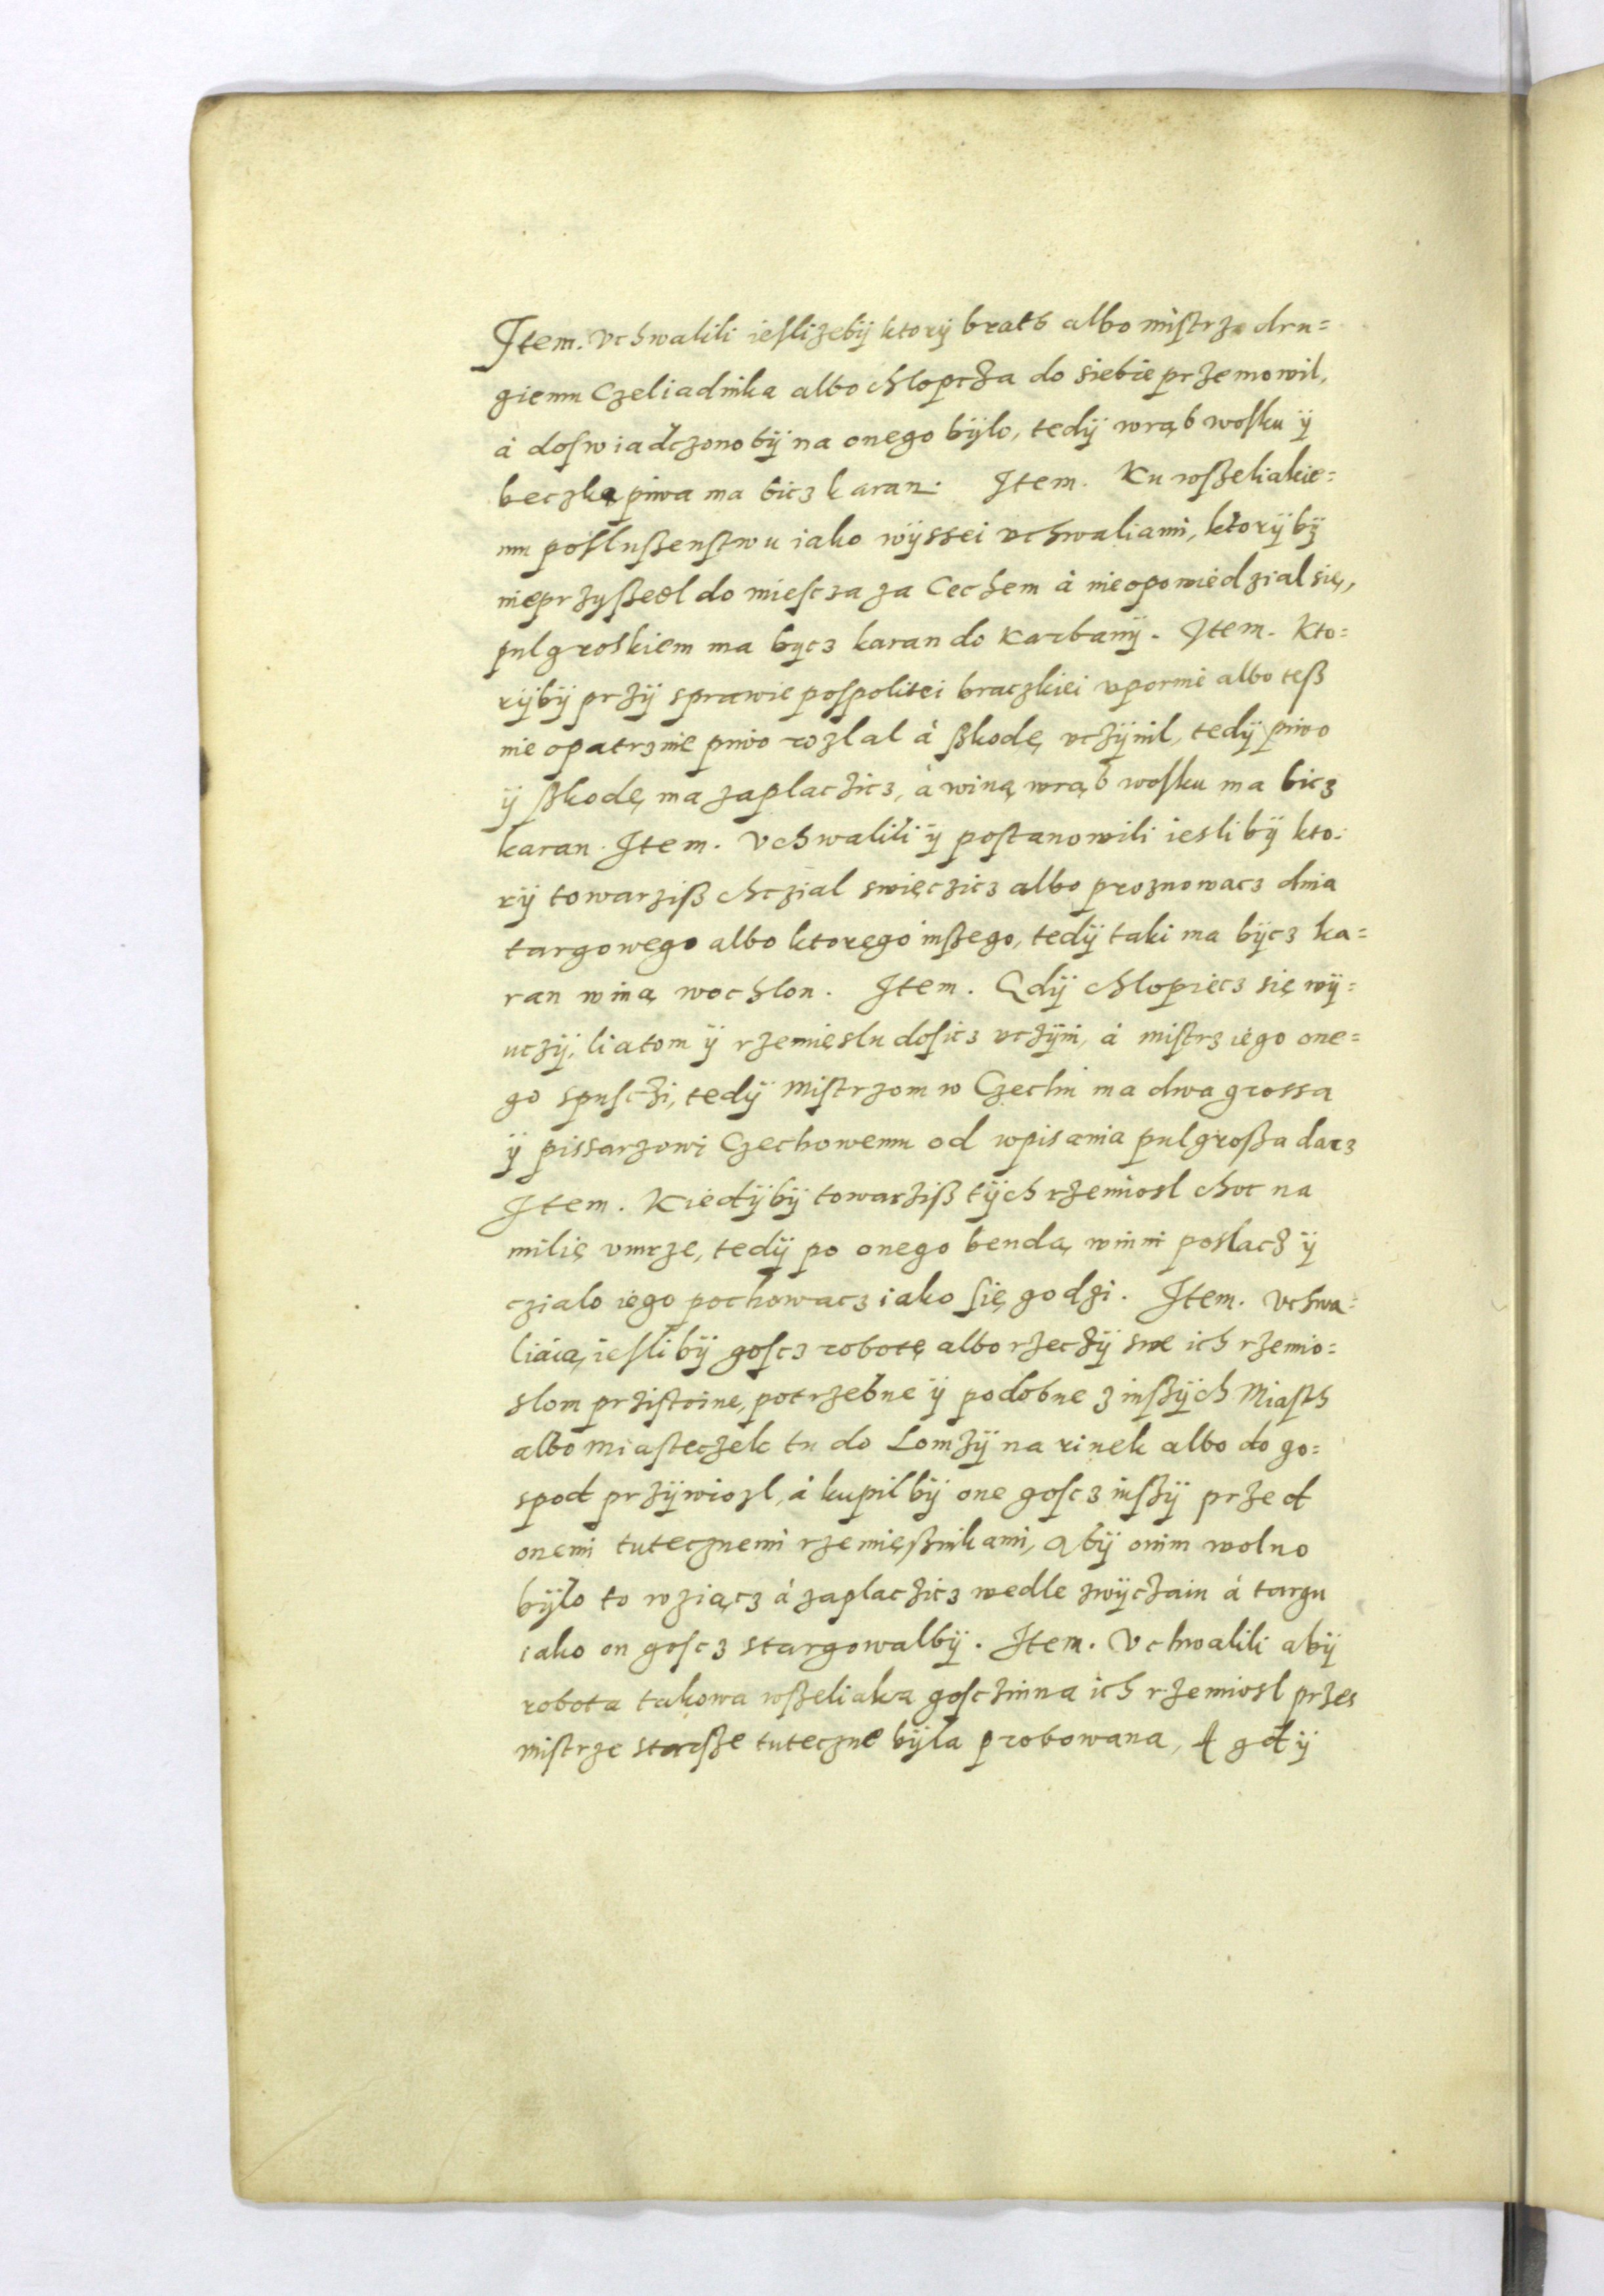 Item. Vchwalili ieslizebÿ ktorÿ brath albo mistrz dru=
giemu Czeliadnika albo chlopcza do siebie przemowil,
à doswiadczonobÿ na onego bÿlo, tedÿ wrąb wosku ÿ
beczką piwa ma bicz karan. Item. Ku wszeliakie=
mu posluszenstwu iako wÿssei vchwaliami, ktorÿbÿ
nieprzyszedl do miescza za Cechem à nieopowiedzial się,
pulgroskiem ma bycz karan do Karbanÿ. Item. Kto=
rÿbÿ przÿ sprawie pospolitei braczkiei vpornie albo tesz
nie opatrznie piwo rozlal à szkodę vczÿnil, tedÿ piwo
ÿ szkodę ma zaplaczicz, à winą wrąb wosku ma bicz
karan. Item. Vchwalili ÿ postanowili iesli bÿ kto=
rÿ towarzisz chczial swięczicz albo proznowacz dnia
targowego albo ktorego inszego, tedÿ taki ma bÿcz ka=
ran winą wochlon. Item. Gdÿ chlopiecz się wÿ=
uczÿ, liatom ÿ rzemięslu dosicz vczÿni, à mistrz iego one=
go spusczi, tedÿ Mistrzom w Czechu ma dwa grossa
ÿ pissarzowi Czechowemu od wpisania pulgrosza dacz
Item. Kiedÿbÿ towarzisz tÿch rzemiosl choc na
milię vmrze, tedÿ po onego bendą winni poslacz ÿ
czialo iego pochowacz iako się godzi. Item. Vchwa=
liaią, iesli bÿ goscz robotę albo rzeczÿ swe ich rzemio=
slom przistoine, potrzebne ÿ podobne z inszÿch Miasth
albo Miasteczek tu do Lomzÿ na rinek albo do go=
spod przÿwiozl, à kupilbÿ one goscz inszÿ przed
onemi tutecznemi rzemięsznikami, Abÿ onim wolno
bÿlo to wziącz à zaplaczicz wedle zwÿczaiu à targu
iako on goscz stargowalbÿ. Item. Vchwalili abÿ
robota takowa wszeliaka gosczinna ich rzemiosl przes
mistrze starsze tuteczne bÿla probowana, A gdÿ